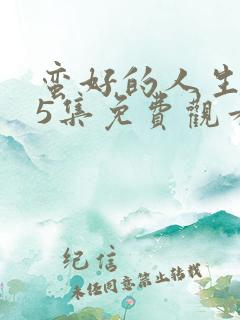 蛮好的人生
5集免费觀
纪信
未经同意禁止转载